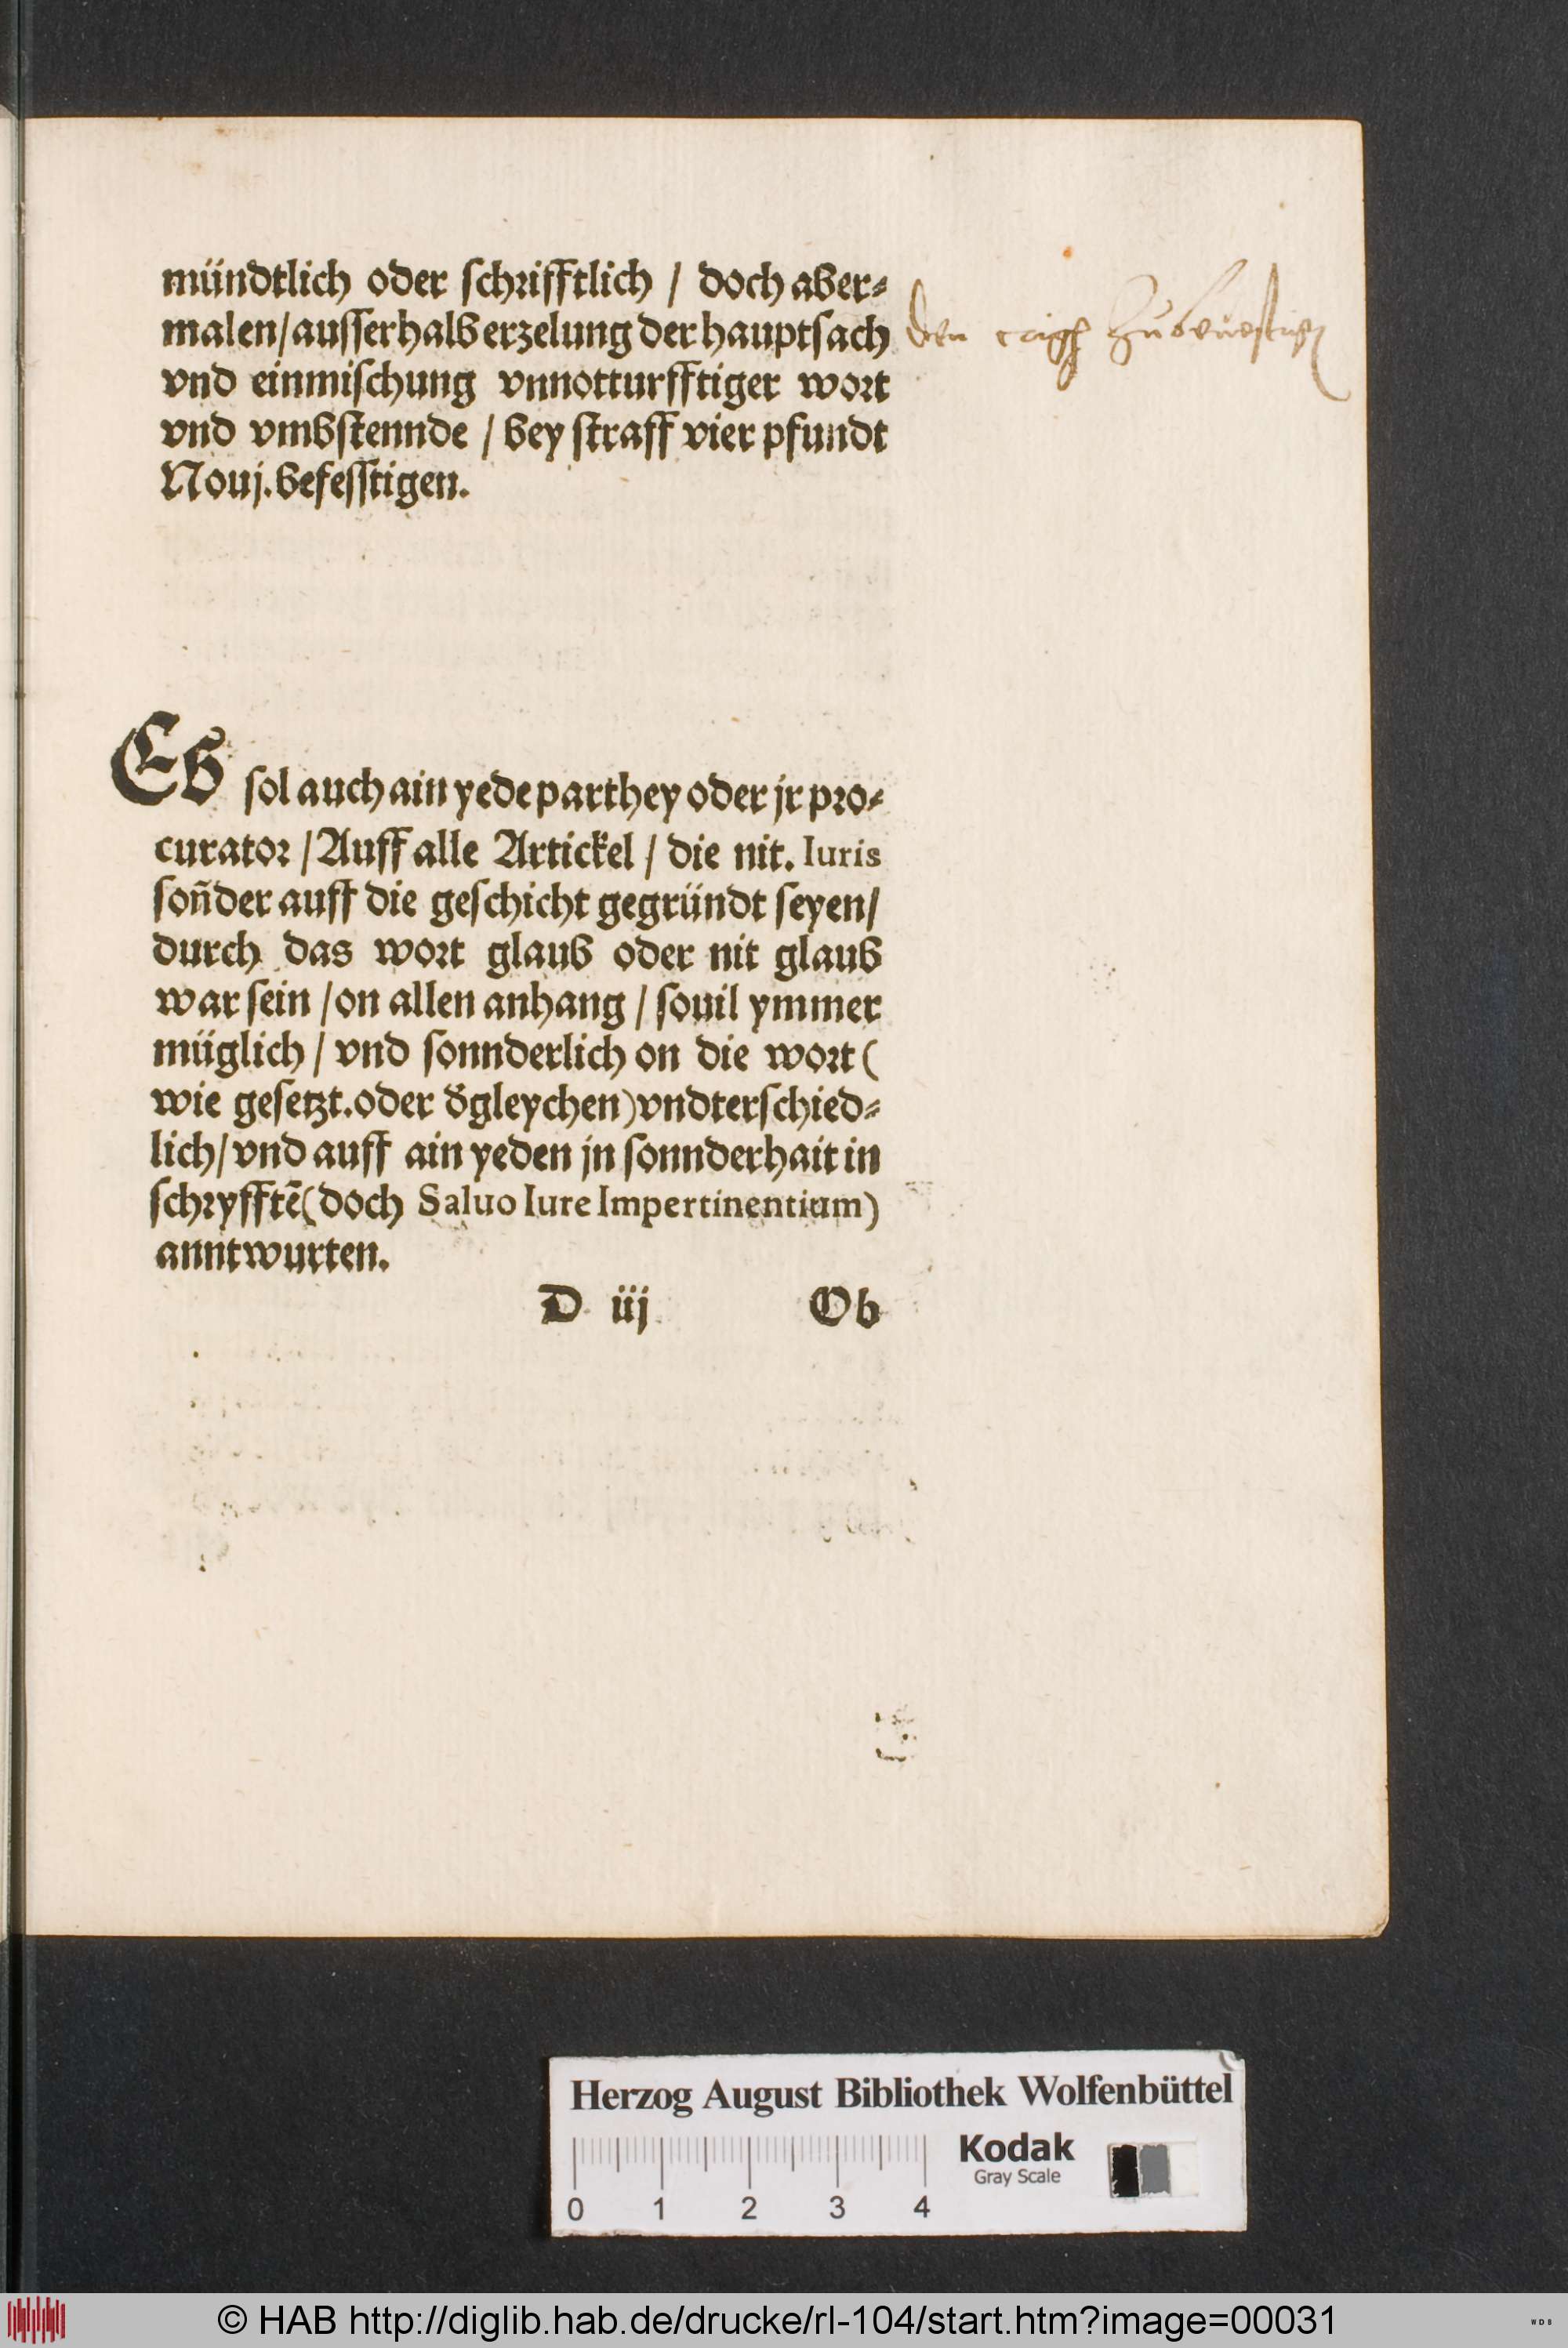 mündtlich oder schrifftlich / doch aber⸗
malen/ausserhalb erzelung der hauptsach
vnd einmischung vnnotturfftiger wort
vnd vmbstennde / bey straff vier pfundt
Nouj. befesstigen.
den krieg zubeuestigen
Es sol auch ain yede parthey oder jr pro⸗
curator / Auff alle Artickel / die nit. Iuris
soñder auff die geschicht gegründt seyen/
durch das wort glaub oder nit glaub
war sein / on allen anhang / souil ymmer
müglich / vnd sonnderlich on die wort (
wie gesetzt. oder d̃gleychen) vndterschied⸗
lich/ vnd auff ain yeden jn sonnderhait in
schryfftẽ (doch Saluo Iure Impertinentium)
anntwurten.
D iij Ob
Herzog August Bibliothek Wolfenbüttel
Kodak
Gray Scale
0 1 2 3 4
© HAB http://diglib.hab.de/drucke/rl-104/start.htm?image=00031